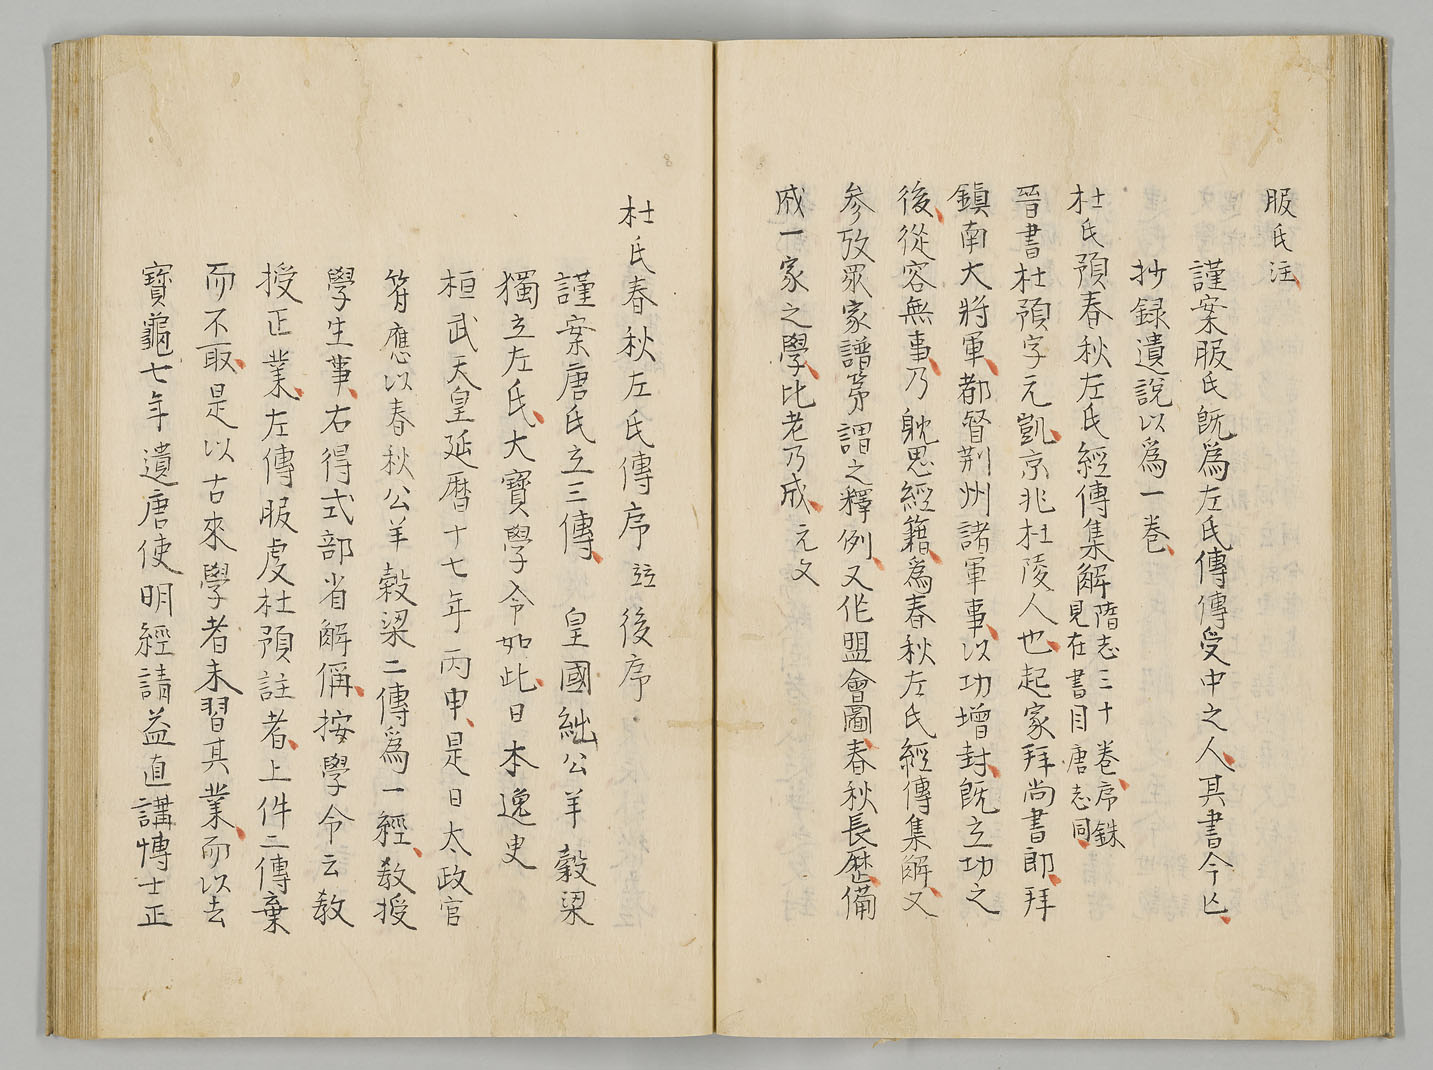 服氏注
謹案服氏既爲左氏傳傳受中之人其書今亾
抄録遺說以爲一卷
杜氏預春秋左氏經傳集解隋志三十卷序銖
見在書目唐志同
晉書杜預字元凱京兆杜陵人也起家拜尚書郎拜
鎮南大將軍都督荊州諸軍事以功增封既立功之
後從容無事乃躭思經籍爲春秋左氏經傳集解又
参攷眾家譜第謂之釋例又作盟會圖春秋長歷備
成一家之學比老乃成元文
杜氏春秋左氏傳序竝後序
謹案唐氏立三傳 皇國絀公羊穀梁
獨立左氏大寶學令如此日本逸史
桓武天皇延暦十七年丙申是日太政官
符應以春秋公羊穀梁二傳爲一經教授
學生事右得式部省解偁按學令云教
授正業左傳服虔杜預註者上件二傳棄
而不取是以古來學者未習其業而以去
寶龜七年遣唐使明經請益直講博士正